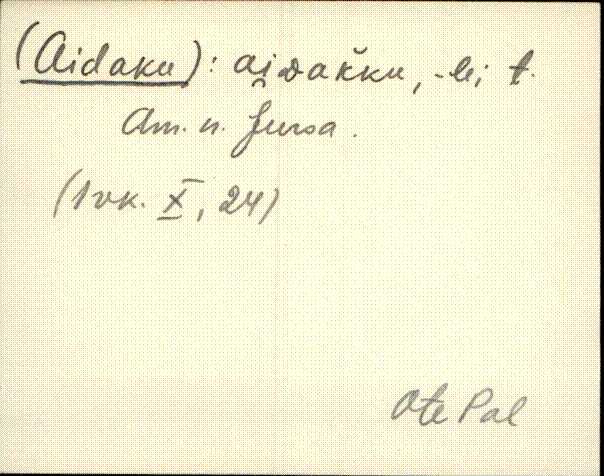 (Aidaku): ai̯dak̆ku, -le; t.
Am. n. Jursa.
(1 vk. X, 24)
Ote Pal